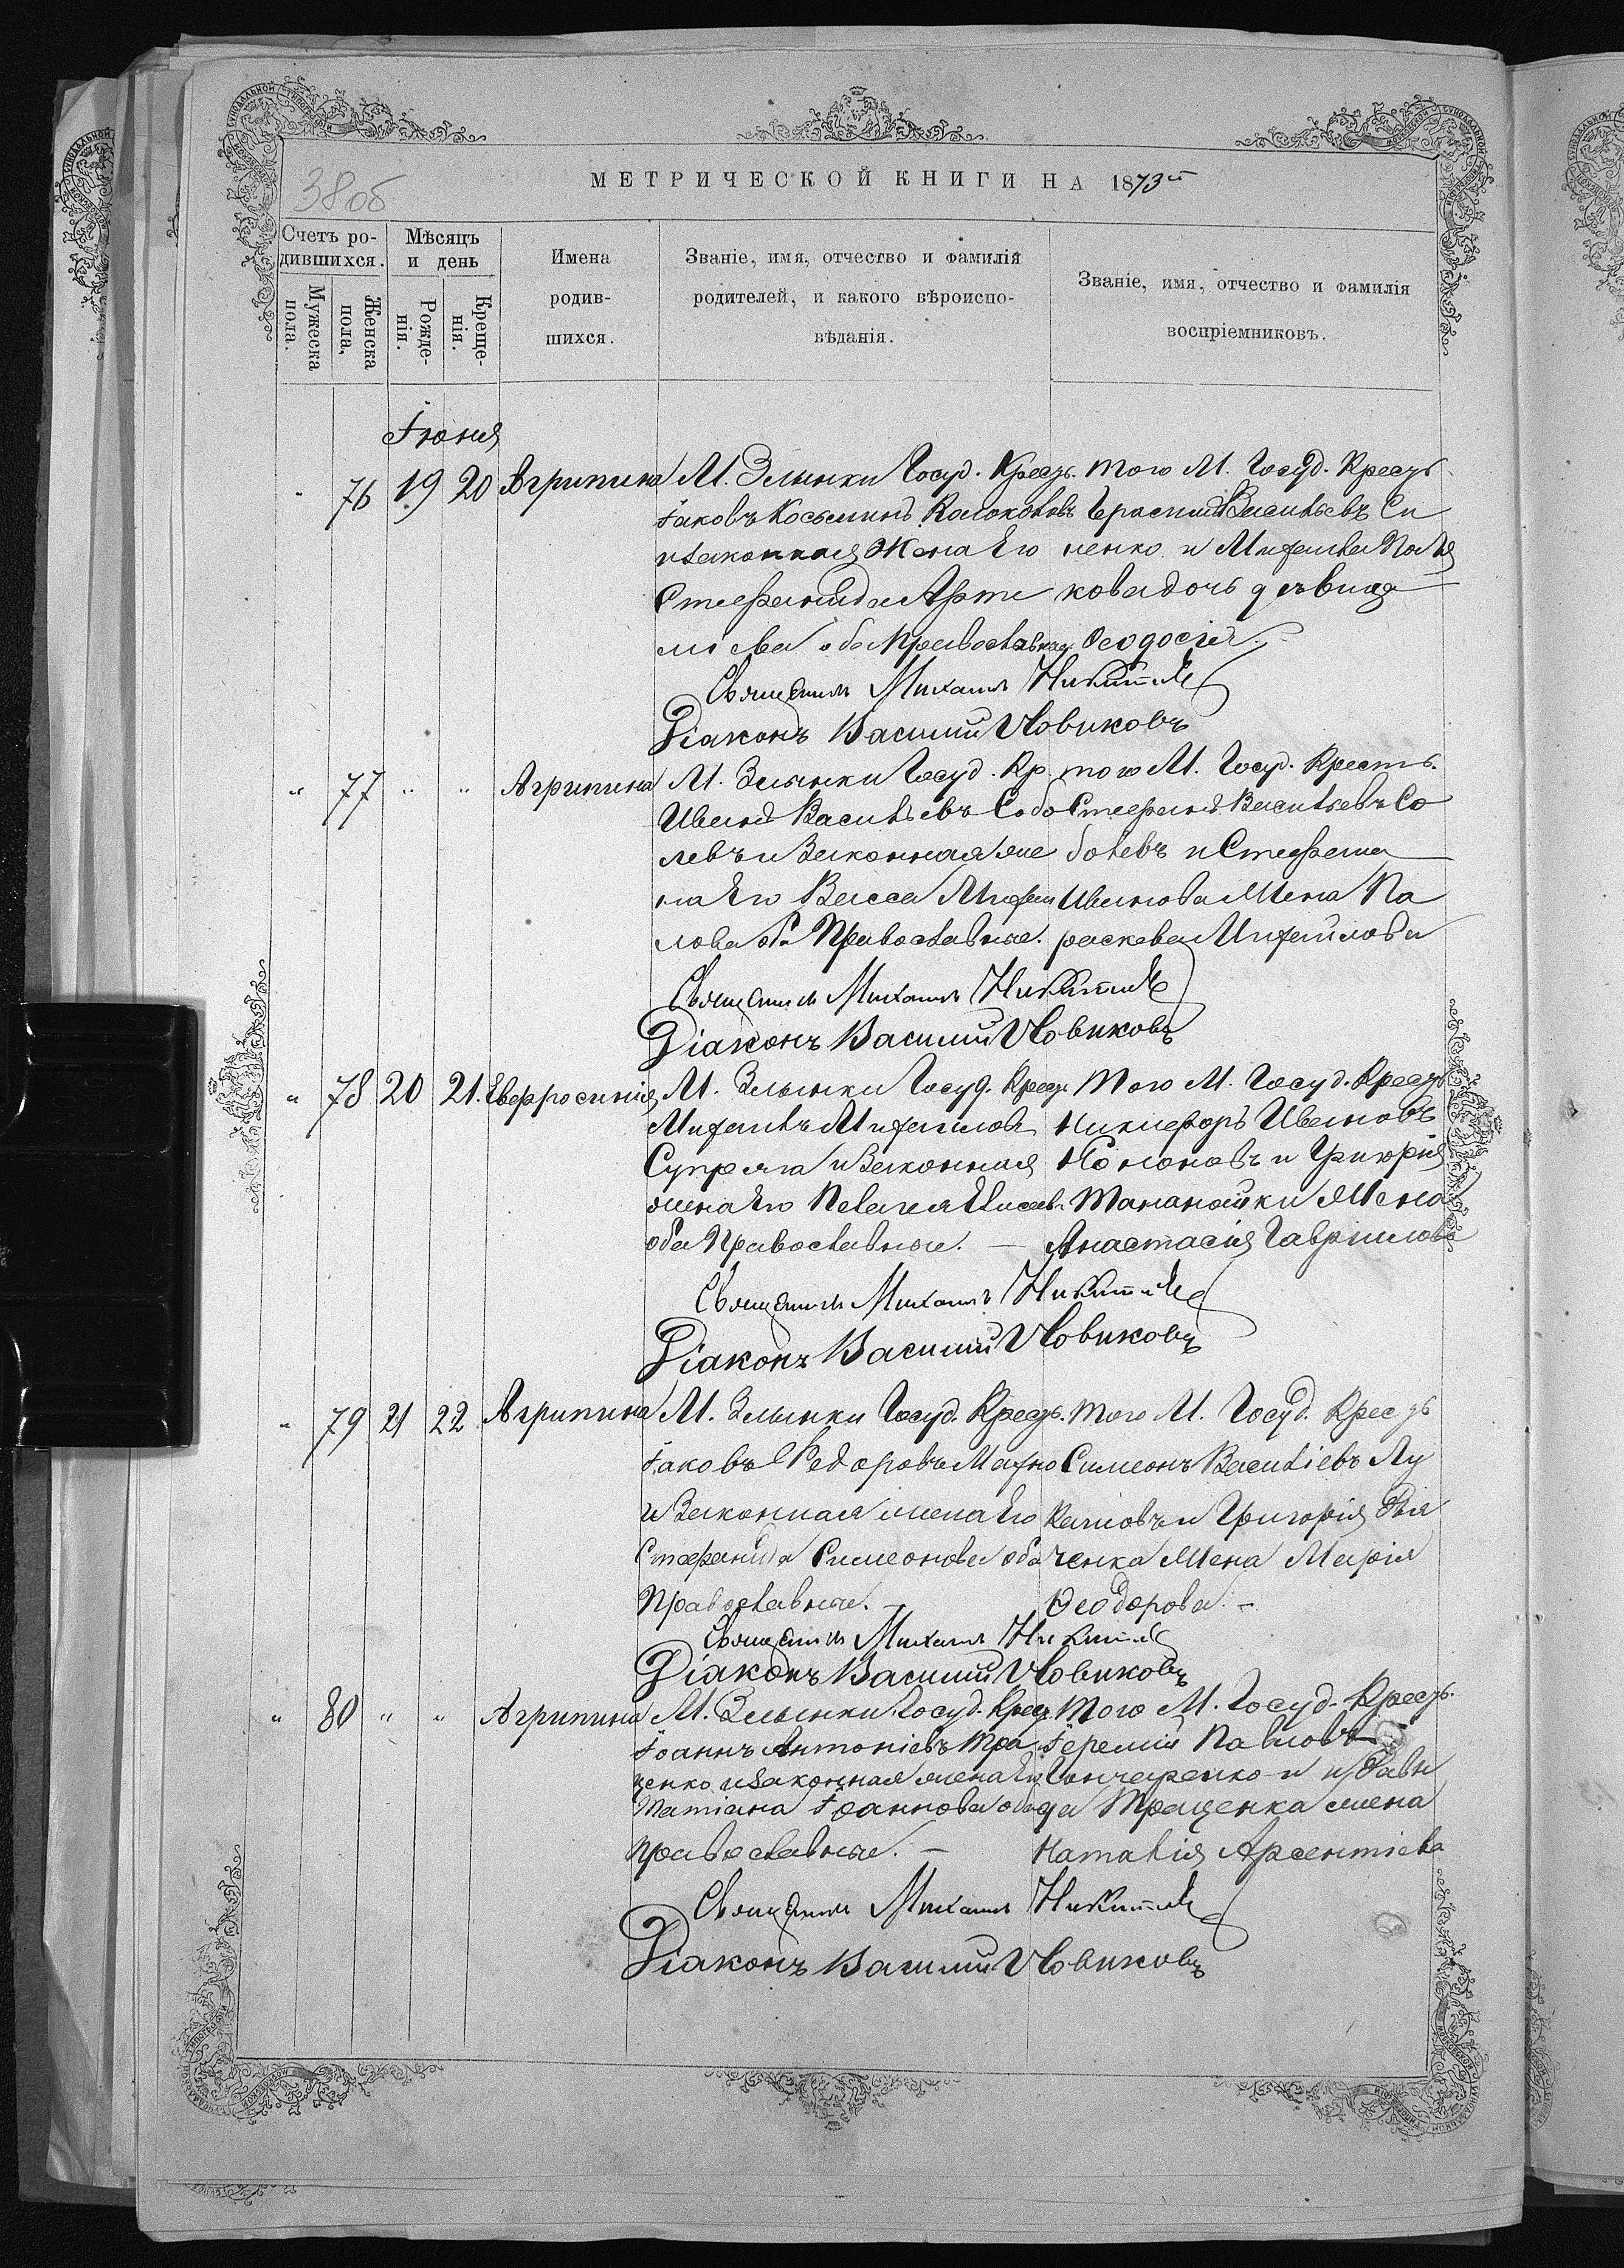 38об
МЕТРИЧЕСКОЙ КНИГИ НА 1873й
Счетъ ро-
дившихся.
Мужеска
пола.
Женска
пола.
Мѣсяцъ
и день
Рожде-
нія.
Креще-
нія.
Имена
родив-
шихся.
Званіе, имя, отчество и фамилія
родителей, и какого вѣроиспо-
вѣданія.
Званіе, имя, отчество и фамилія
воспріемниковъ.
Іюня
" 76 19 20 Агрипина
М. Злынки Госуд. Крест.
Іаковъ Косьминъ
и законная Жена Его
Стефанида Арте
міева оба Православные
того М. Госуд. Крест.
Герасимъ Васильевъ Си
ненко и Михаила Поля
кова дочь дѣвица
Ѳеодосія. -
Священникъ Михаилъ Никитинъ
Діаконъ Василій Новиковъ
" 77 " " Агрипина
М. Злынки Госуд. Кр.
Иванъ Васильевъ Собо
левъ и Законная же
на Его Васса Михаи
лова оба Православные.
того М. Госуд. Крестъ.
Стефанъ Васильевъ Со
болевъ и Стефана
Иванова Жена Па
раскева Михайлова
Священникъ Михаилъ Никитинъ
Діаконъ Василій Новиковъ
" 78 20 21. Евфросинія
М. Злынки Госуд. Крест.
Михаилъ Михаиловъ
Супряга и Законная
жена Его Пелагея Елисеев.
оба Православные. —
Того М. Госуд. Крест.
Никифоръ Ивановъ
Кононовъ и Григорія
Жена
Анастасія Гаврилова
Священникъ Михаилъ Никитинъ
Діаконъ Василій Новиковъ
" 79 21 22 Агрипина
М. Злынки Госуд. Крест.
Іаковъ Федоровъ Махно
и Законная жена Его
Стефанида Симеонова оба
Православные. -
того М. Госуд. Крест.
Симеонъ Василіевъ Лу
кановъ и Григорія Дья
ченка Жена Марія
Ѳеодорова. -
Священникъ Михаилъ Никитинъ
Діаконъ Василій Новиковъ
" 80 " " Агрипина
М. Злынки Госуд. Крест.
Іоаннъ Антоніевъ Тра
ценко и законная жена Его
Татіана Іоаннова оба
Православные. —
Того М. Госуд. Крест.
Іеремій Павловъ
Гончаренко и
да Траценка жена
Наталія Арсентіева
Священникъ Михаилъ Никитинъ
Діаконъ Василій Новиковъ